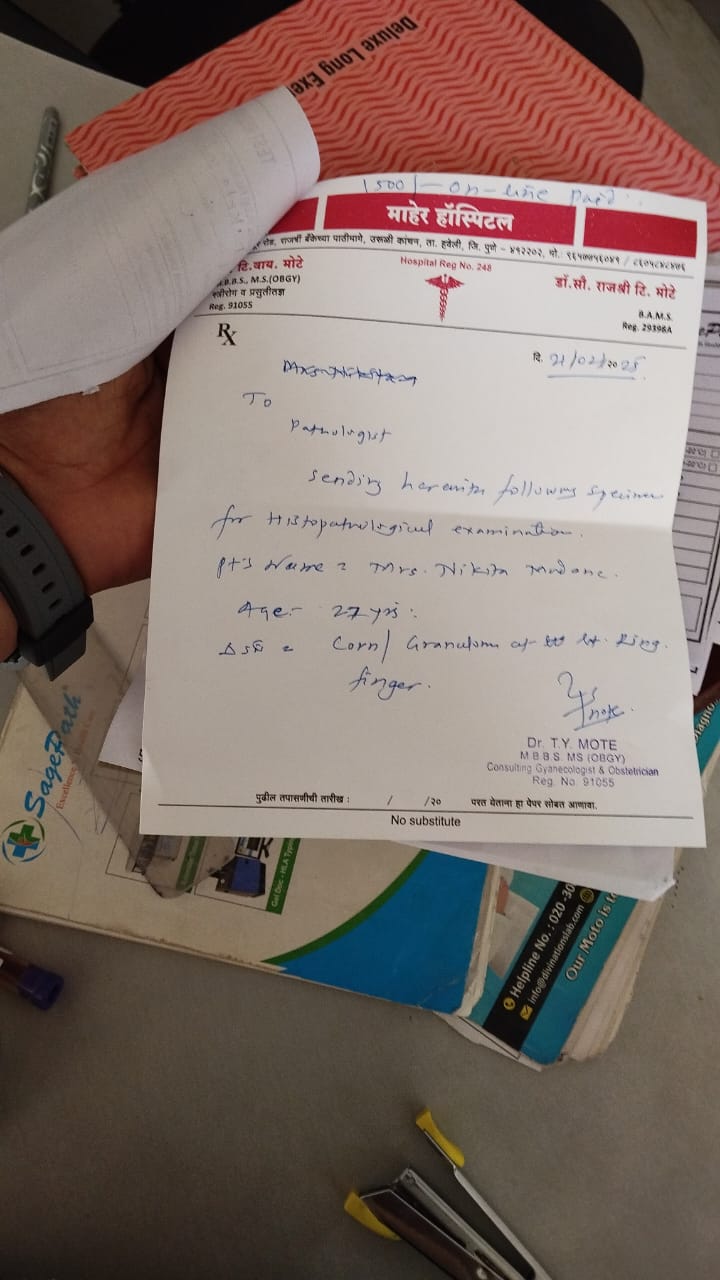 Deluxe Long Exe
1500/- on-line paid
माहेर हॉस्पिटल
रोड, राजर्षी बँकेच्या पाठीमागे, उरूळी कांचन, ता. हवेली, जि. पुणे - ४१२२०२, मो.
टि.वाय. मोटे
M.B.B.S., M.S.(OBGY)
स्त्रीरोग व प्रसुतीतज्ञ
Reg. 91055
Hospital Reg No. 248
डॉ.सौ. राजश्री टि. मोटे
B.A.M.S.
Reg. 29396A
Rx
दि. 21/02/2025
To
Pathologist
Sending herewith following specimen
for Histopathological examination.
Pt's Name = Mrs. Nikita Madane.
Age:- 27 yrs.
Corn/ Granuloma of Lt. Ring
finger.
Dr. T.Y. MOTE
M.B.B.S. MS (OBGY)
Consulting Gyanecologist & Obstetrician
Reg. No. 91055
पुढील तपासणीची तारीख : / /२० परत येताना हा पेपर सोबत आणावा.
No substitute
SagePath
Excellence
Gel Doc - HLA Typi
Helpline No.: 020 -30
info@divinationslab.com
Our Moto is to